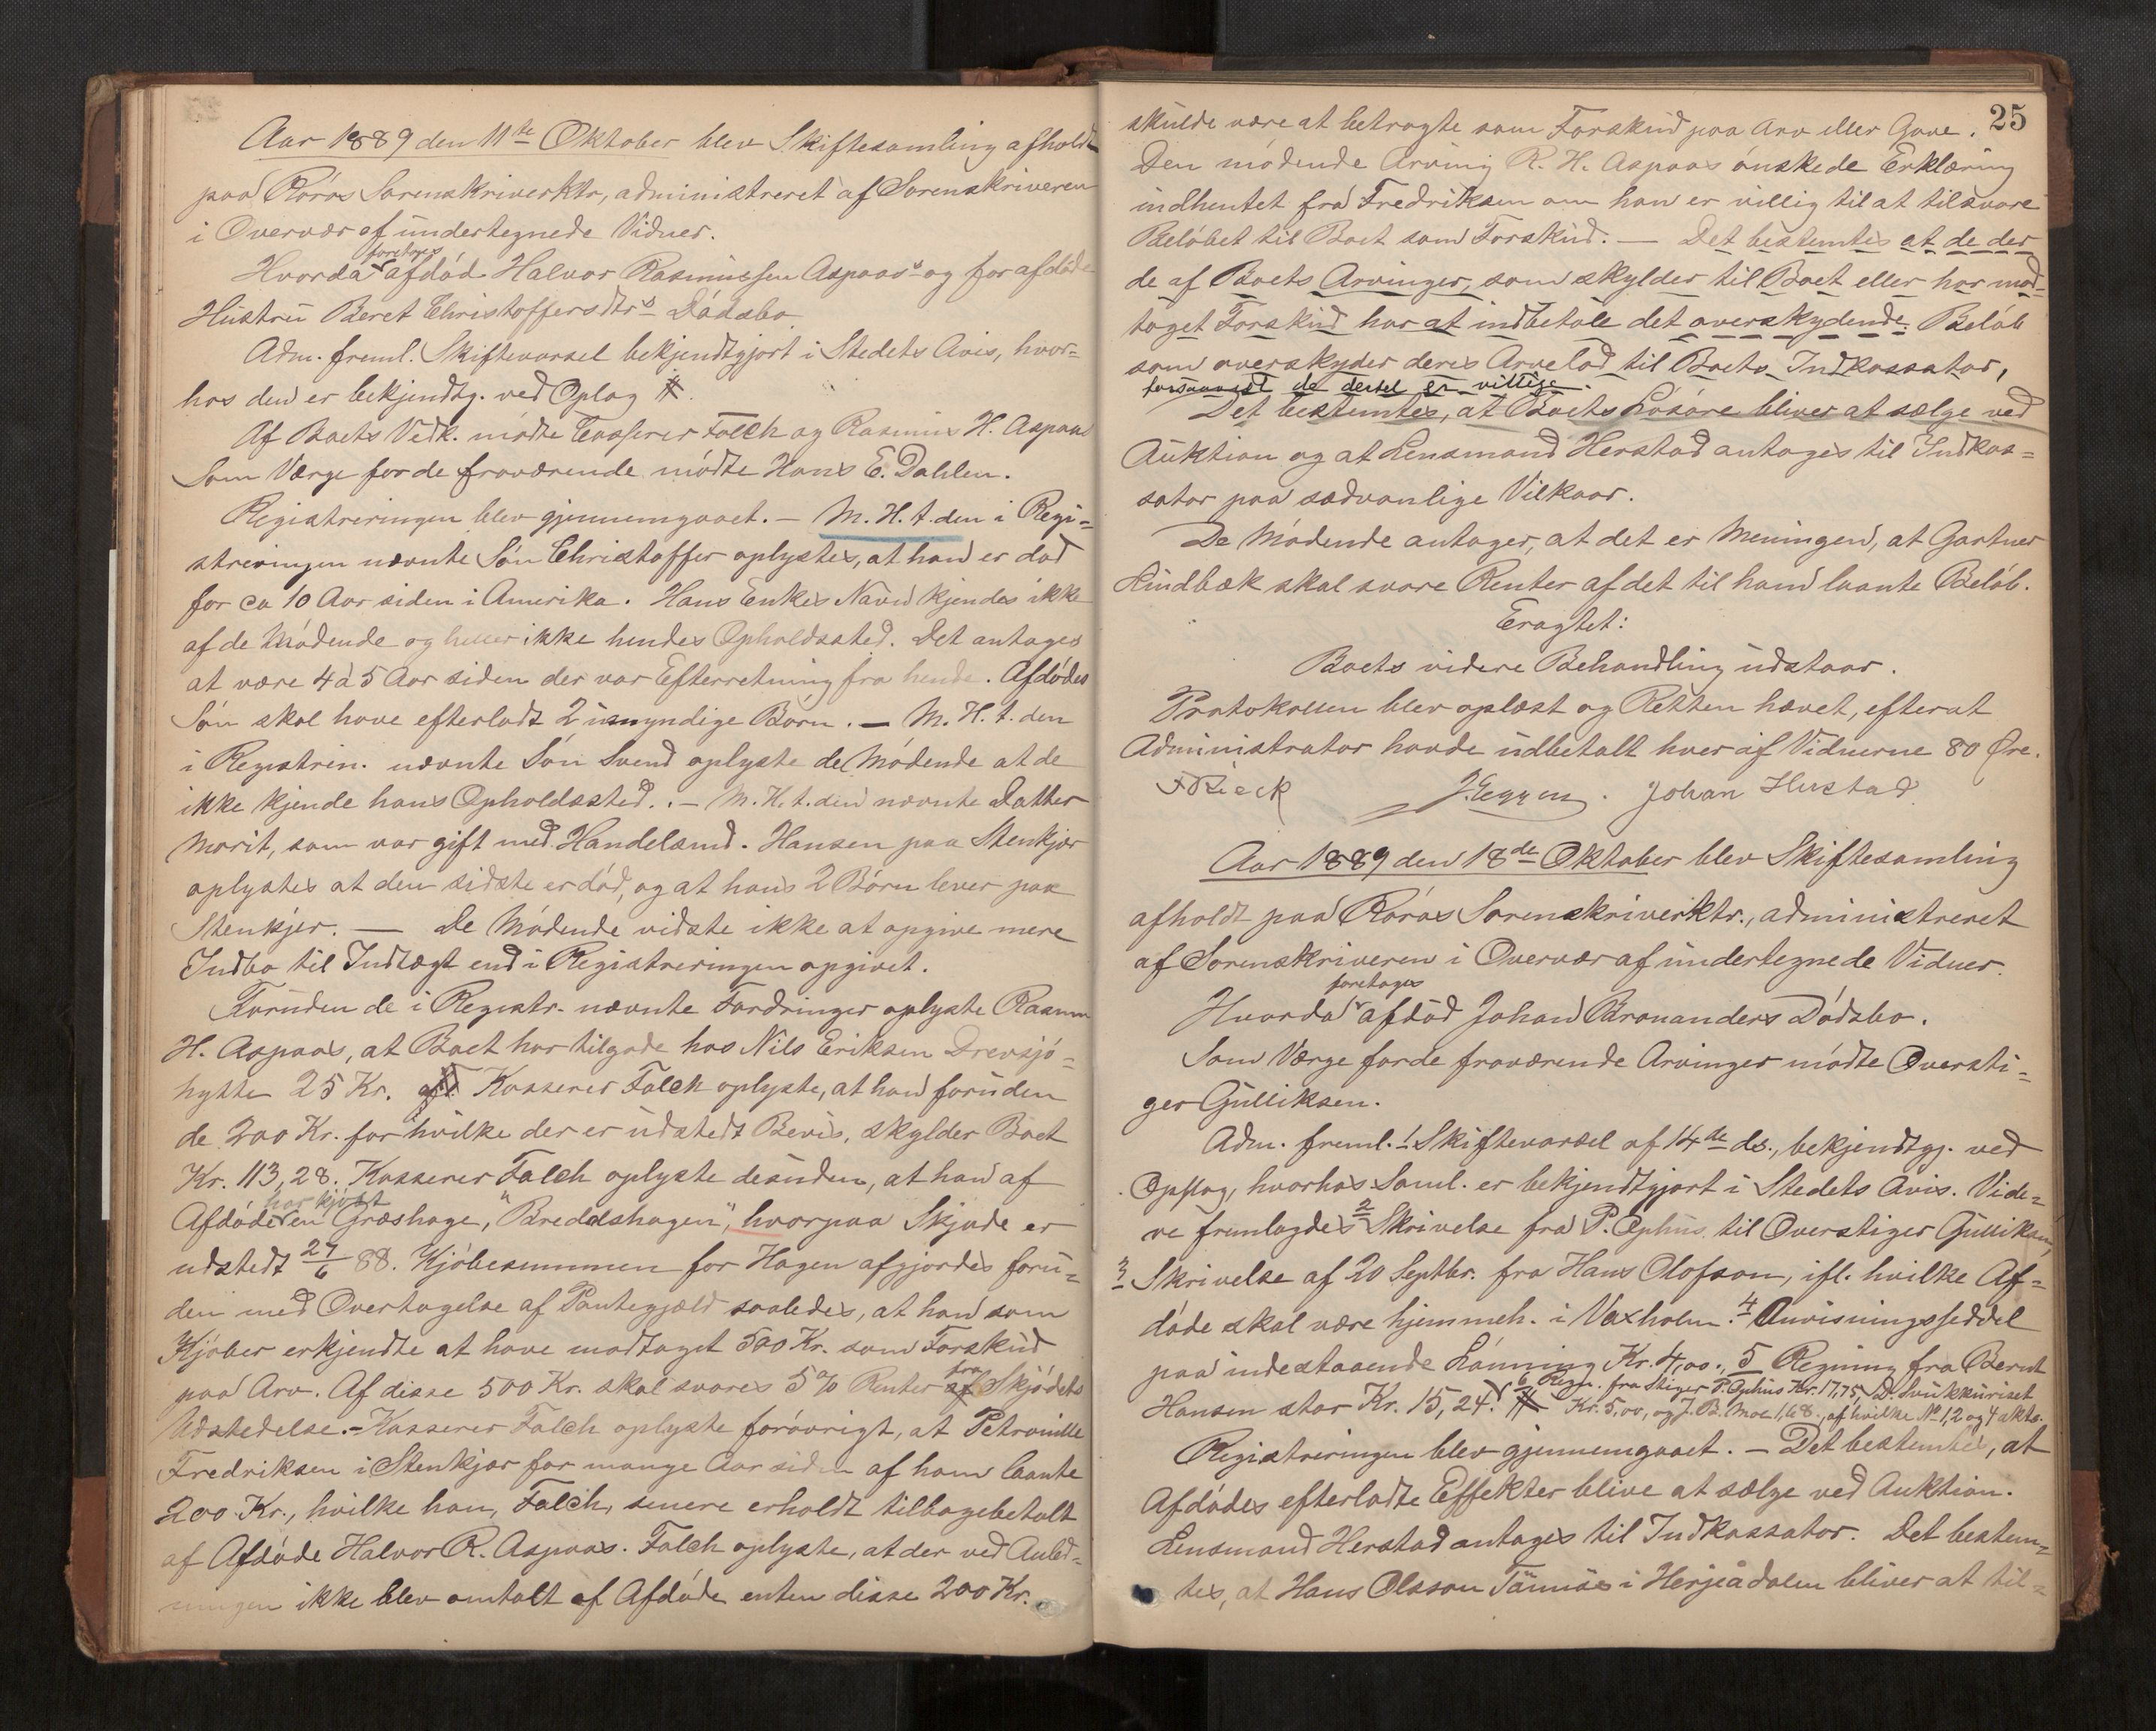 Aar 1889 den 11te Oktober blev Skiftesamling afholdt
paa Röros Sorenskriverktr, administreret af Sorenskriveren
i Overvær af undertegnede Vidner.
foretoges
Hvorda afdöd Halvor Rasmussen Aspaas's og for afdöde
Hustru Beret Christoffersdtrs Dödsbo
Adm. freml. Skiftevarsel bekjendtgjort i Stedets Avis, hvor-
hos den er bekjendtg. ved Oplag
Af Boets Vedk. mödte Casserer Falch og Rasmus H. Aspaas
Som Værge for de fraværende mödte Hans E. Dahlen.
Registreringen blev gjennemgaaet. — M. H. t. den i Regi-
streringen nævnte Sön Christoffer oplystes, at han er död
for ca 10 Aar siden i Amerika. Hans Enkes Navn kjendes ikke
af de Mödende og heller ikke hendes Opholdssted. Det antages
at være 4 à 5 Aar siden der var Efterretning fra hende. Afdödes
Sön skal have efterladt 2 umyndige Börn. — M. H. t. den
i Registrin. nævnte Sön Svend oplyste de Mödende at de
ikke kjende hans Opholdssted. . — M. H. t. den nævnte Datter
Marit, som var gift med Handelsmd. Hansen paa Stenkjær
oplystes at den sidste er död, og at hans 2 Börn lever paa
Stenkjer. — De Mödende vidste ikke at opgive mere
Indbo til Indtægt end i Registreringen opgivet.
Foruden de i Registr. nævnte Fordringer oplyste Rasmus
H. Aspaas, at Boet har tilgode hos Nils Eriksen Drevsjö-
hytte 25 Kr. Kasserer Falch oplyste, at han foruden
de 200 Kr. for hvilke der er udstedt Bevis, skylder Boet
Kr. 113,28. Kasserer Falch oplyste desuden, at han af
har kjöbt
Afdöde en Græshage, "Breddshagen", hvorpaa Skjöde er
udstedt 27/6 88. Kjöbesummen for Hagen afgjordes foru-
den med Overtagelse af Pantegjæld saaledes, at han som
Kjöber erkjendte at have modtaget 500 Kr. som Forskud
paa Arv. Af disse 500 Kr. skal svares 5 % Renter fra Skjödets
Udstedelse. - Kasserer Falch oplyste forövrigt, at Petronille
Fredriksen i Stenkjær for mange Aar siden af ham laante
200 Kr., hvilke han, Falch, senere erholdt tilbagebetalt
af Afdöde Halvor R. Aspaas. Falch oplyste, at der ved Anled-
ningen ikke blev omtalt af Afdöde enten disse 200 Kr.
25
skulde være at betragte som Forskud paa Arv eller Gave.
Den mödende Arving R. H. Aspaas önskede Erklæring
indhentet fra Fredriksen om han er villig til at tilsvare
Belöbet til Boet som Forskud. — Det bestemtes at de der
de af Boets Arvinger, som skylder til Boet eller har mod-
taget Forskud har at indbetale det overskydende Belöb
som overskyder deres Arvelod til Boets Indkassator,
forsaavidt de dertil er villige.
Det bestemtes, at Boets Lösöre bliver at sælge ved
Auktion og at Lensmand Herstad antages til Indkas-
sator paa sædvanlige Vilkaar.
De Mödende antager, at det er Meningen, at Gartner
Lindbæk skal svare Renter af det til ham laante Belöb.
Eragtet:
Boets videre Behandling udstaar.
Protokollen blev oplæst og Retten hævet, efterat
Administrator havde udbetalt hver af Vidnerne 80 Øre.
J. Eggen. Johan Hustad
Aar 1889 den 18de Oktober blev Skiftesamling
afholdt paa Röros Sorenskriverktr., administreret
af Sorenskriveren i Overvær af undertegnede Vidner.
foretoges
Hvorda afdöd Johan Brouanders Dödsbo.
Som Værge for de fraværende Arvinger mödte Oversti-
ger Gulliksen.
Adm. freml. 1 Skiftevarsel af 14de ds., bekjendtgj. ved
Opslag, hvorhos Saml. er bekjendtgjort i Stedets Avis. Vide-
re fremlagdes 2 Skrivelse fra P. Ophus til Overstiger Gulliksen,
3 Skrivelse af 20 Septbr. fra Hans Olofson, ifl. hvilke Af-
döde skal være hjemmeh. i Vaxholm. 4 Anvisningsseddel
paa indestaaende Lönning Kr. 4,00., 5 Regning fra Bernt
6 Regn. fra Stiger P. Ophus Kr. 17,75,
Hansen stor Kr. 15,24. Kr. 5,00, og J. B. Moe 1,68., af hvilke No 1, 2 og 4 akts.
Registreringen blev gjennemgaaet. — Det bestemtes, at
Afdödes efterladte Effekter blive at sælge ved Auktion.
Lensmand Herstad antages til Indkassator. Det bestem-
tes, at Hans Olsson Tännäs i Herjeådalen bliver at til-